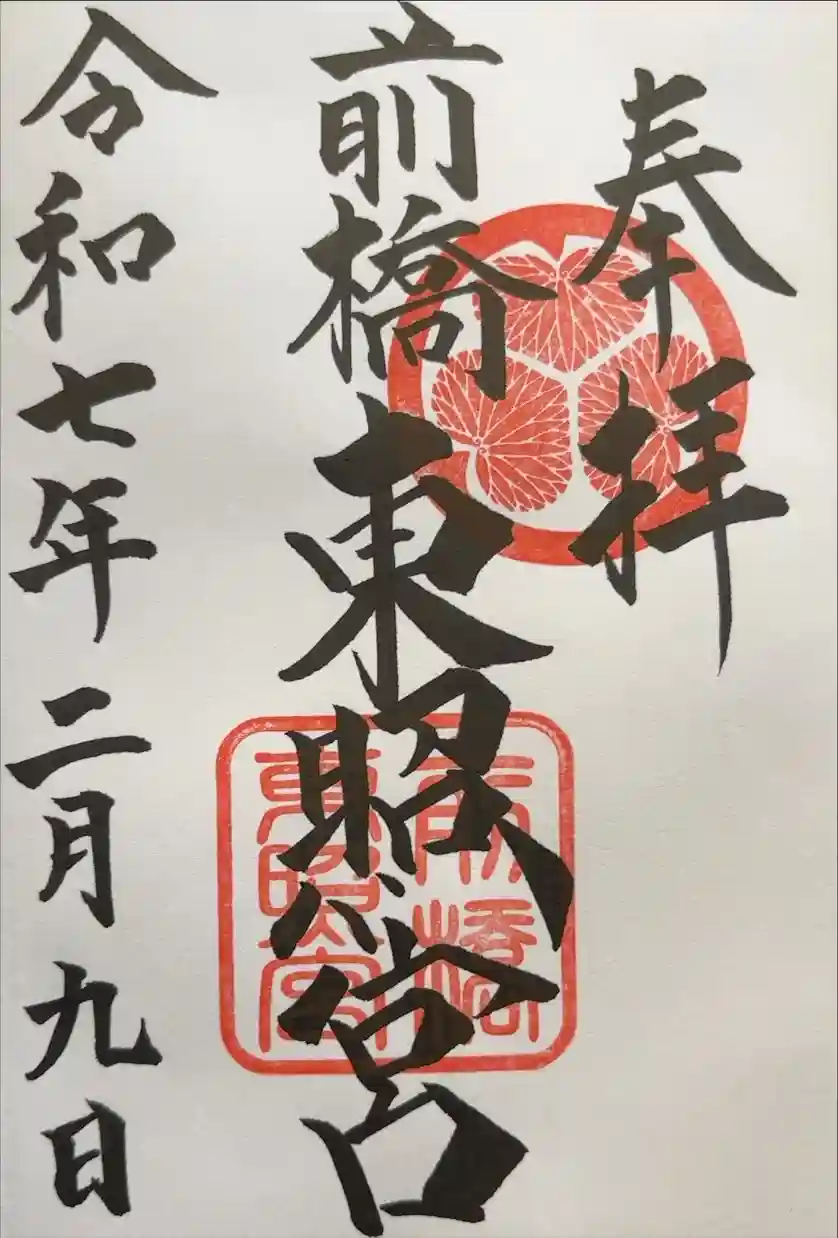 奉拝
前橋東照宮
前橋
東照宮
令和七年二月九日